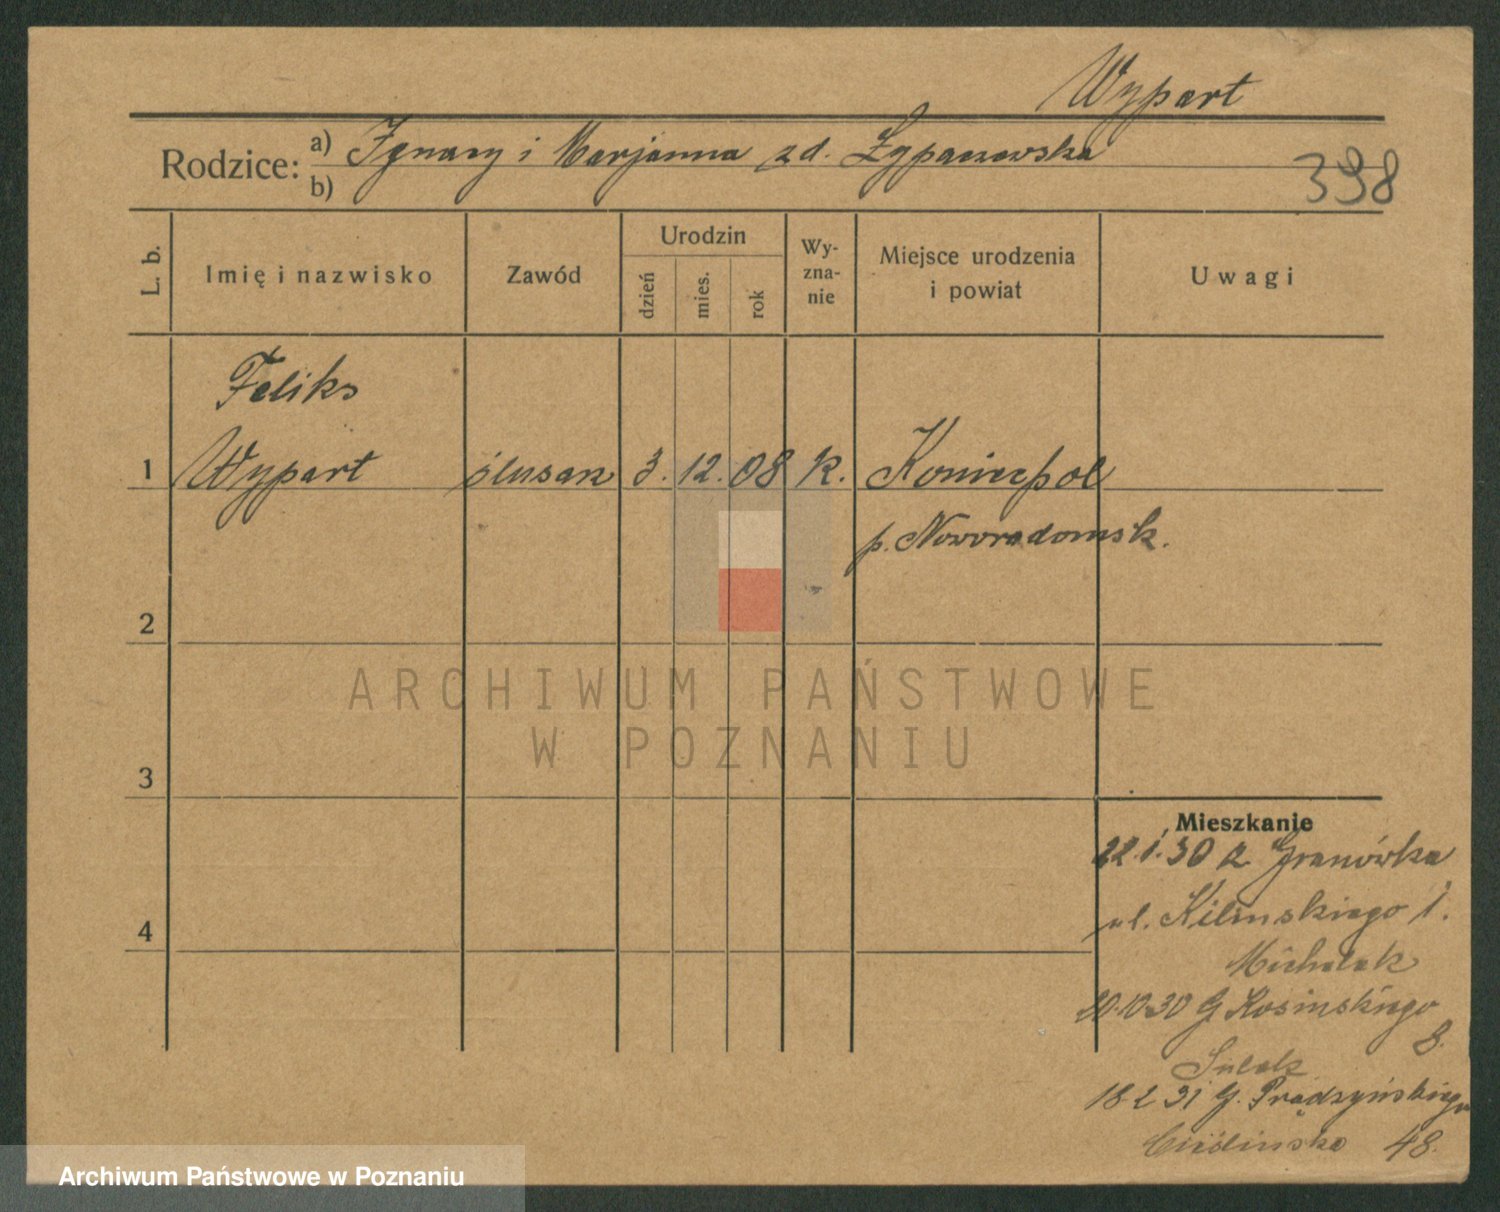 Wypart
Rodzice: a) Ignacy i Marjanna zd. Łypaczewska
b)
398
L. b.
Imię i nazwisko
Zawód
Urodzin
dzień
mies.
rok
Wy-
zna-
nie
Miejsce urodzenia
i powiat
Uwagi
Feliks
1 Wypart ślusarz 3. 12. 08 k. Koniecpol
p. Noworadomsk.
2
3
4
ARCHIWUM PAŃSTWOWE
W POZNANIU
Mieszkanie
22.1.30 z Granówka
ul. Kilinskiego 1.
Michalak
20.10.30 G. Kosinskiego
8.
18 2 31 G. Prądzyńskiego
48.
Archiwum Państwowe w Poznaniu